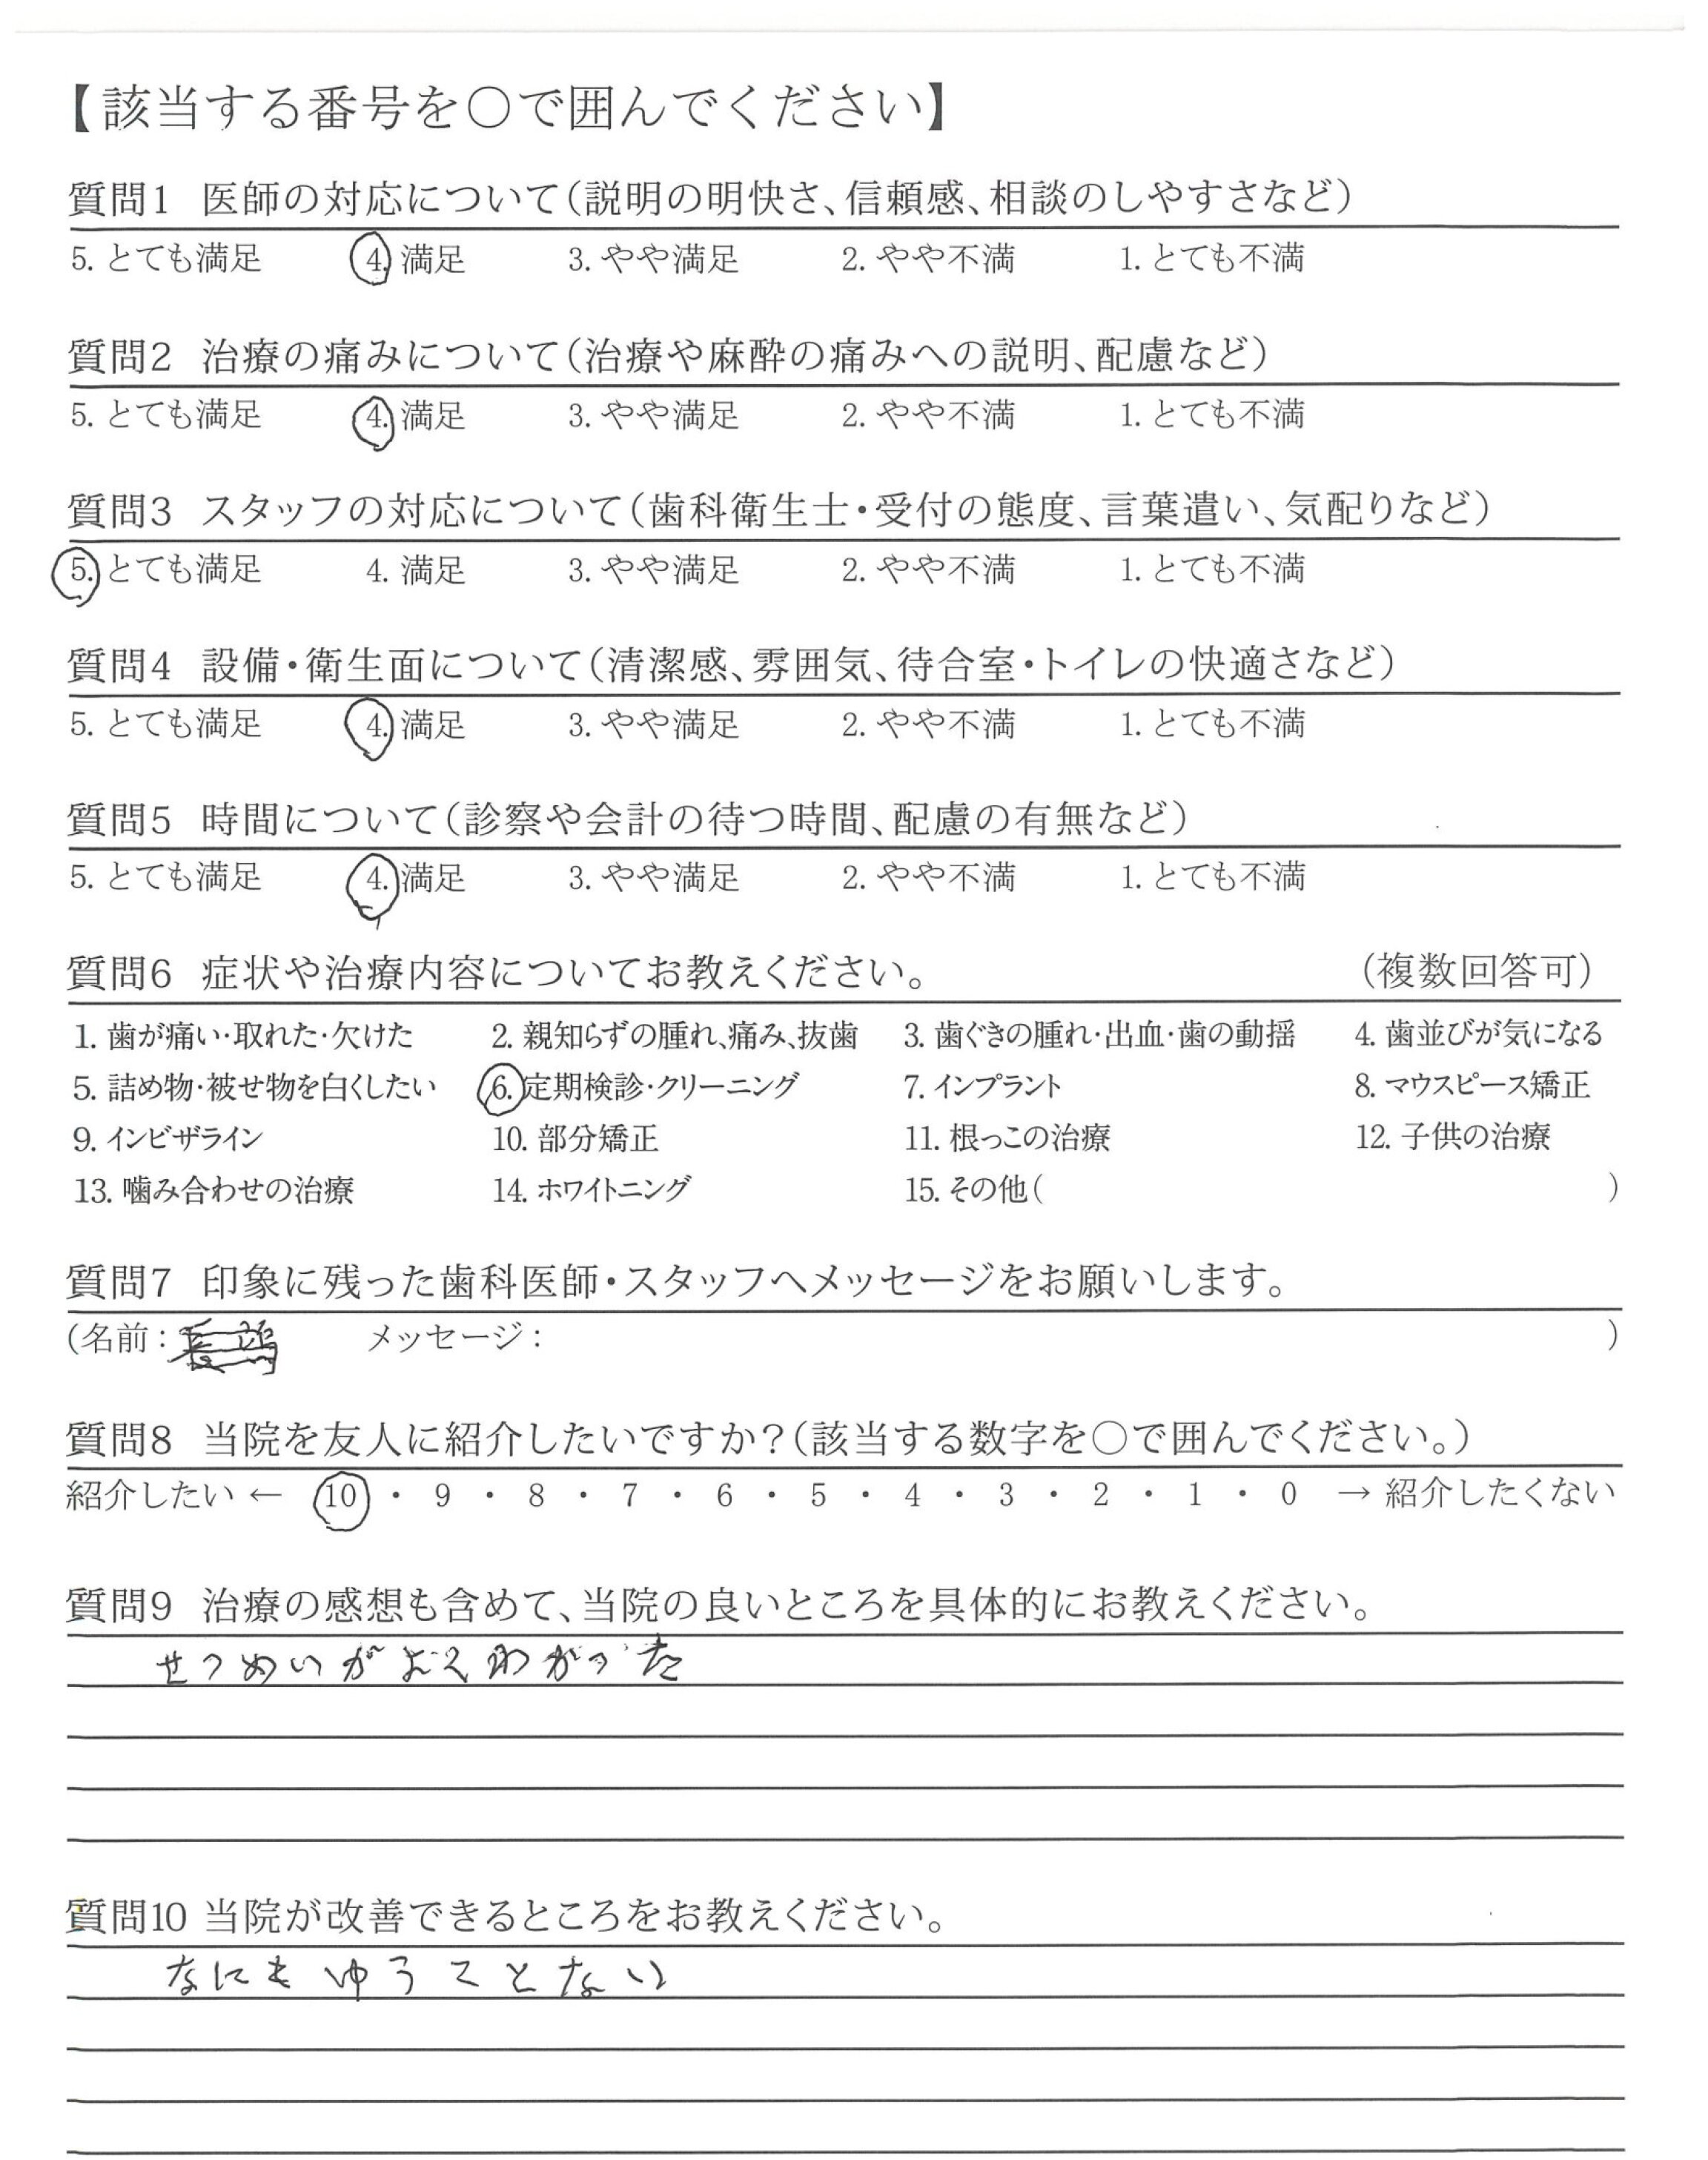 【該当する番号を○で囲んでください】
質問1 医師の対応について（説明の明快さ、信頼感、相談のしやすさなど）
5. とても満足 4. 満足 3. やや満足 2. やや不満 1. とても不満
質問2 治療の痛みについて（治療や麻酔の痛みへの説明、配慮など）
5. とても満足 4. 満足 3. やや満足 2. やや不満 1. とても不満
質問3 スタッフの対応について（歯科衛生士・受付の態度、言葉遣い、気配りなど）
5. とても満足 4. 満足 3. やや満足 2. やや不満 1. とても不満
質問4 設備・衛生面について（清潔感、雰囲気、待合室・トイレの快適さなど）
5. とても満足 4. 満足 3. やや満足 2. やや不満 1. とても不満
質問5 時間について（診察や会計の待つ時間、配慮の有無など）
5. とても満足 4. 満足 3. やや満足 2. やや不満 1. とても不満
質問6 症状や治療内容についてお教えください。 （複数回答可）
1. 歯が痛い・取れた・欠けた 2. 親知らずの腫れ、痛み、抜歯 3. 歯ぐきの腫れ・出血・歯の動揺 4. 歯並びが気になる
5. 詰め物・被せ物を白くしたい 6. 定期検診・クリーニング 7. インプラント 8. マウスピース矯正
9. インビザライン 10. 部分矯正 11. 根っこの治療 12. 子供の治療
13. 噛み合わせの治療 14. ホワイトニング 15. その他（ ）
質問7 印象に残った歯科医師・スタッフへメッセージをお願いします。
（名前： メッセージ： ）
質問8 当院を友人に紹介したいですか？（該当する数字を○で囲んでください。）
紹介したい ← 10 ・ 9 ・ 8 ・ 7 ・ 6 ・ 5 ・ 4 ・ 3 ・ 2 ・ 1 ・ 0 → 紹介したくない
質問9 治療の感想も含めて、当院の良いところを具体的にお教えください。
せつめいがよくわかった
質問10 当院が改善できるところをお教えください。
なにもゆうことない